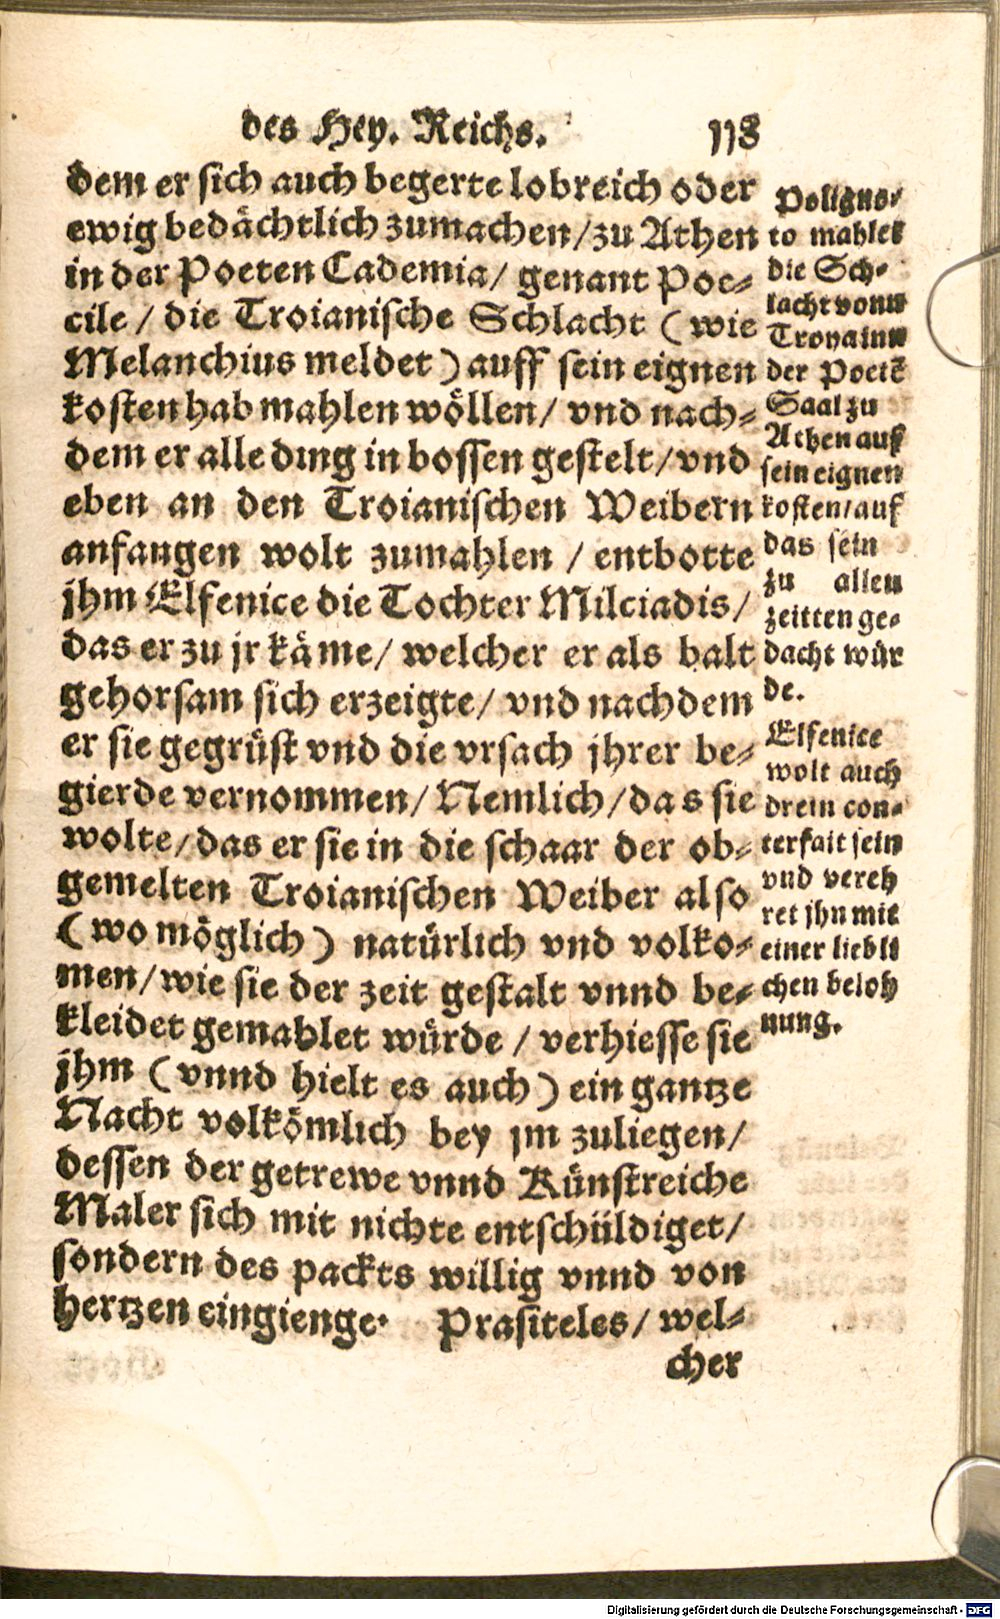 des Hey. Reichs. 113
dem er sich auch begerte lobreich oder
ewig bedächtlich zumachen/zu Athen
in der Poeten Cademia/ genant Poe-
cile / die Troianische Schlacht (wie
Melanchius meldet) auff sein eignen
kosten hab mahlen wöllen/ vnd nach-
dem er alle ding in bossen gestelt/vnd
eben an den Troianischen Weibern
anfangen wolt zumahlen / entbotte
jhm Elfenice die Tochter Milciadis/
das er zu jr käme/ welcher er als balt
gehorsam sich erzeigte/ vnd nachdem
er sie gegrüst vnd die vrsach jhrer be-
gierde vernommen/ Nemlich/das sie
wolte/das er sie in die schaar der ob-
gemelten Troianischen Weiber also
(wo möglich) natürlich vnd volko-
men/wie sie der zeit gestalt vnnd be-
kleidet gemahlet würde / verhiesse sie
jhm (vnnd hielt es auch) ein gantze
Nacht volkömlich bey jm zuliegen/
dessen der getrewe vnnd Künstreiche
Maler sich mit nichte entschüldiget/
sondern des packts willig vnnd von
hertzen eingienge. Prasiteles/ wel-
cher
Polignо-
to mahlet
die Sch-
lacht vonn
Troyainn
der Poetē
Saal zu
Athen auf
sein eignen
kosten/auf
das sein
zu allen
zeitten ge-
dacht wür
de.
Elfenice
wolt auch
drein con-
terfait sein
vnd vereh
ret jhn mit
einer liebli
chen beloh
nung.
Digitalisierung gefördert durch die Deutsche Forschungsgemeinschaft - DFG